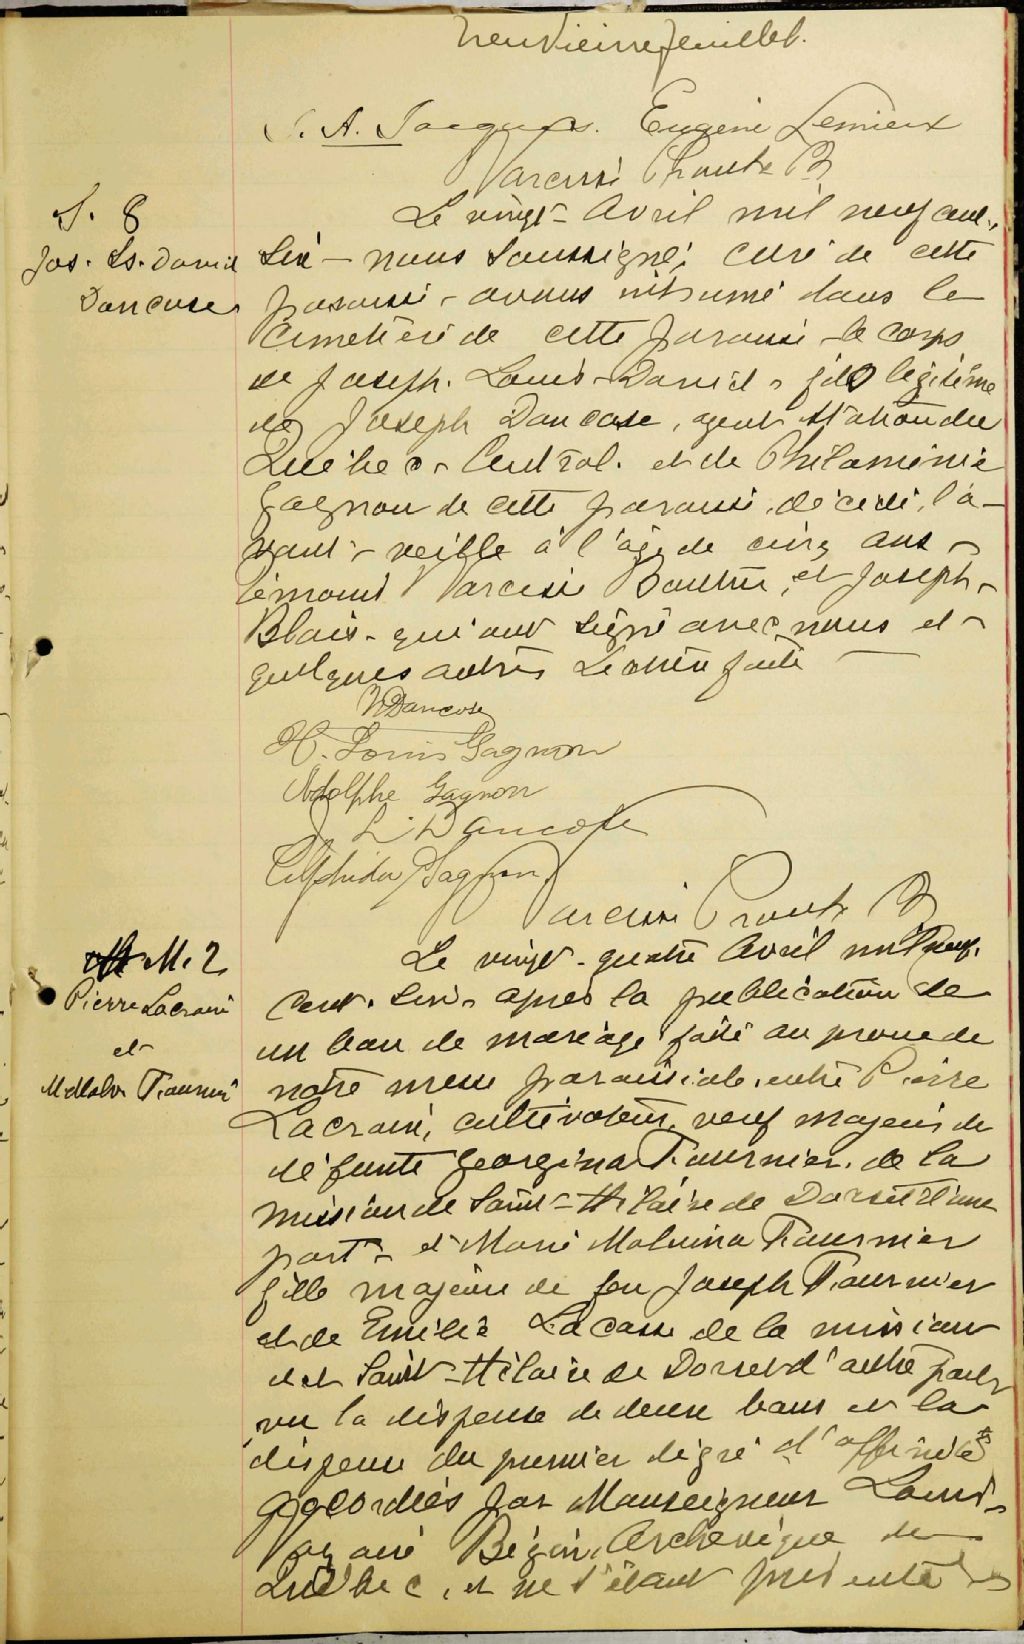 Neuvième feuillet.
J. A. Jacques. Eugène Lemieux
Narcisse Proulx Ptr
S. 8
Jos. Ls. David
Dancose
Le vingt Avril mil neuf cent.
Six - nous Soussigné, curé de cette
paroisse - avons inhumé dans le
Cimetière de cette paroisse - le corps
de Joseph. Louis - David, fils légitime
de Joseph Dancose, agent Station du
Québec - Central. et de Philoménie
Gagnon de cette paroisse, décédé, l'a-
vant - veille à l'âge de cinq ans -
témoins Narcisse et Joseph -
Blais - qui ont signé avec nous et -
quelques autres Lecture faite
Dancose
H. Louis Gagnon
Adolphe Gagnon
J L. Dancose
Elphida Gagnon
Narcisse Proulx Ptr
M. 2
Pierre Lacroix
et
M Malv. Fournier
Le vingt - quatre Avril mil neuf.
Cent. Six - après la publication de
un ban de mariage faite au prone de
notre messe paroissiale, entre Pierre
Lacroix, cultivateur, veuf majeur de
défunte Georgina Fournier. de la
mission de Saint - Hilaire de Dorset d'une
part - et Marie Malvina Fournier
fille majeure de feu Joseph Fournier
et de Emilie Lacasse de la mission
de Saint - Hilaire de Dorset d'autre part
vu la dispense de deux bans et la
dispense du premier degré d'affinité
accordées par Monseigneur Louis -
Nazaire Bégin, Archevêque de
Québec, et ne s'étant présenté